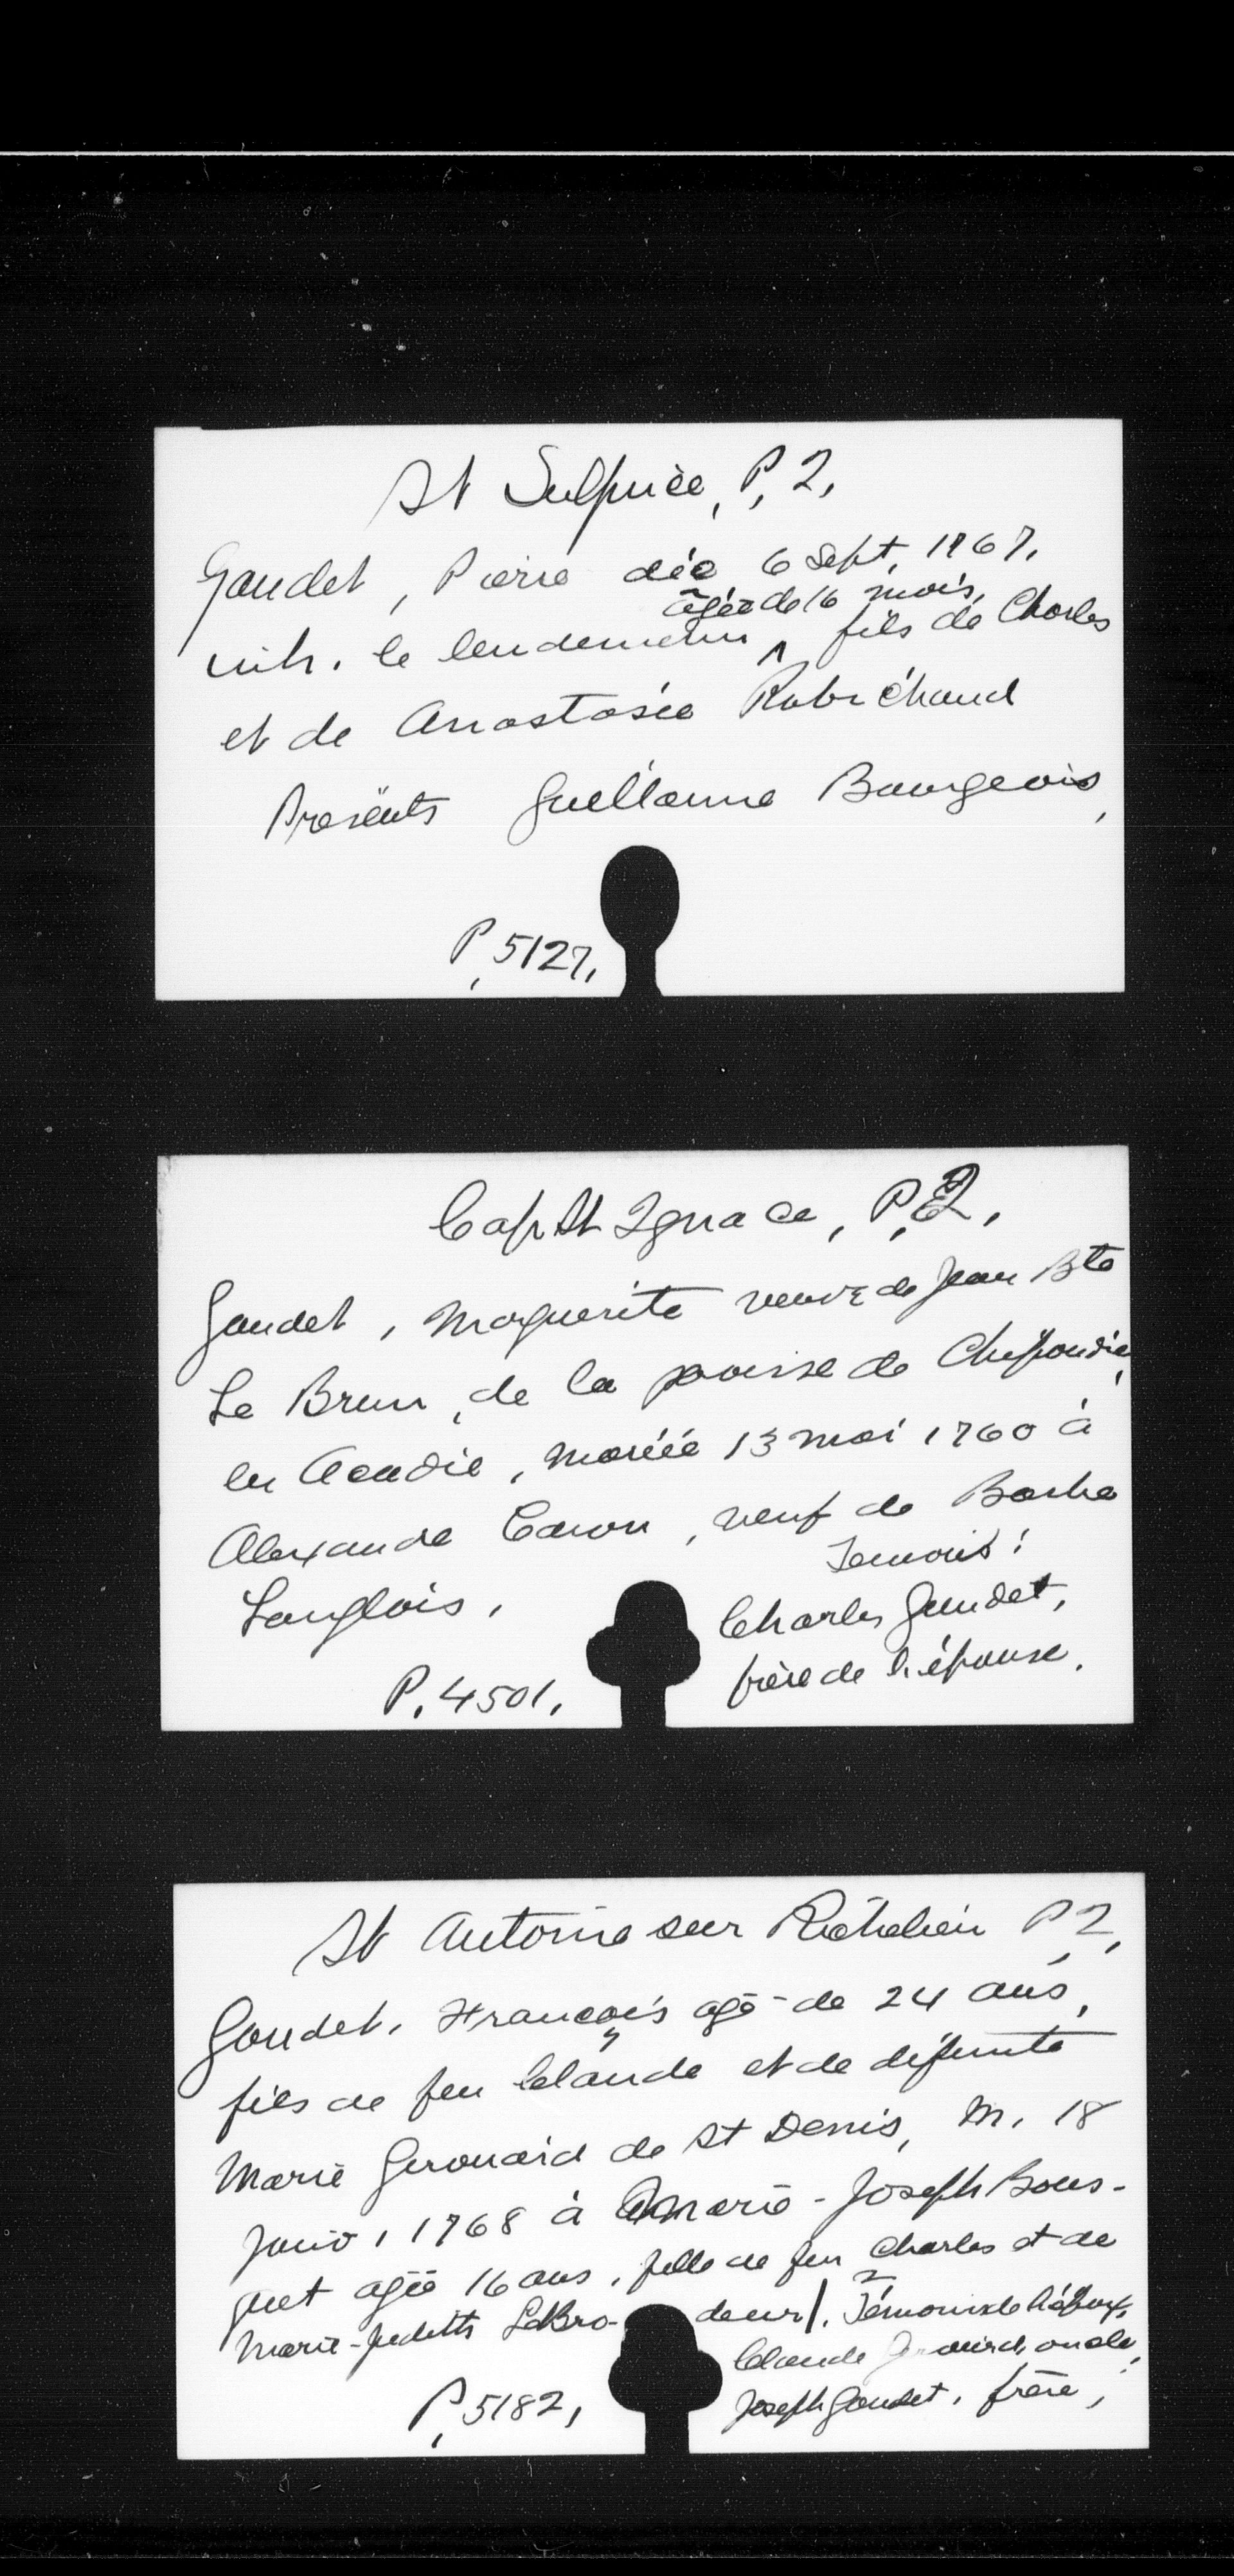 St Sulpice, P. 2.
Gaudet, Pierre déc. 6 Sept. 1767.
âgée de 16 mois,
inh. le lendemain ^ fils de Charles
et de Anastasie Robichaud
Présents Guillaume Bourgeois,
P. 5127.
Cap St Ignace, P. 2.
Gaudet, Marguerite veuve de Jean Bte
Le Brun, de la paroisse de Chipoudie,
en Acadie, mariée 13 mai 1760 à
Alexandre Caron, veuf de Barbe
Langlois.
Temoins:
Charles Gaudet,
frère de l'épouse.
P. 4501.
St Antoine sur Richelieu P. 2.
Gaudet, François agé de 24 ans,
fils de feu Claude et de defunte
Marie Girouard de St Denis, M. 18
janv. 1768 à Marie-Joseph Bous-
quet agée 16 ans, fille de feu Charles et de
Marie-Judith LeBro-deur/. Témoins de l'époux,
Claude Girouard, oncle,
Joseph Gaudet, frère,
P. 5182.